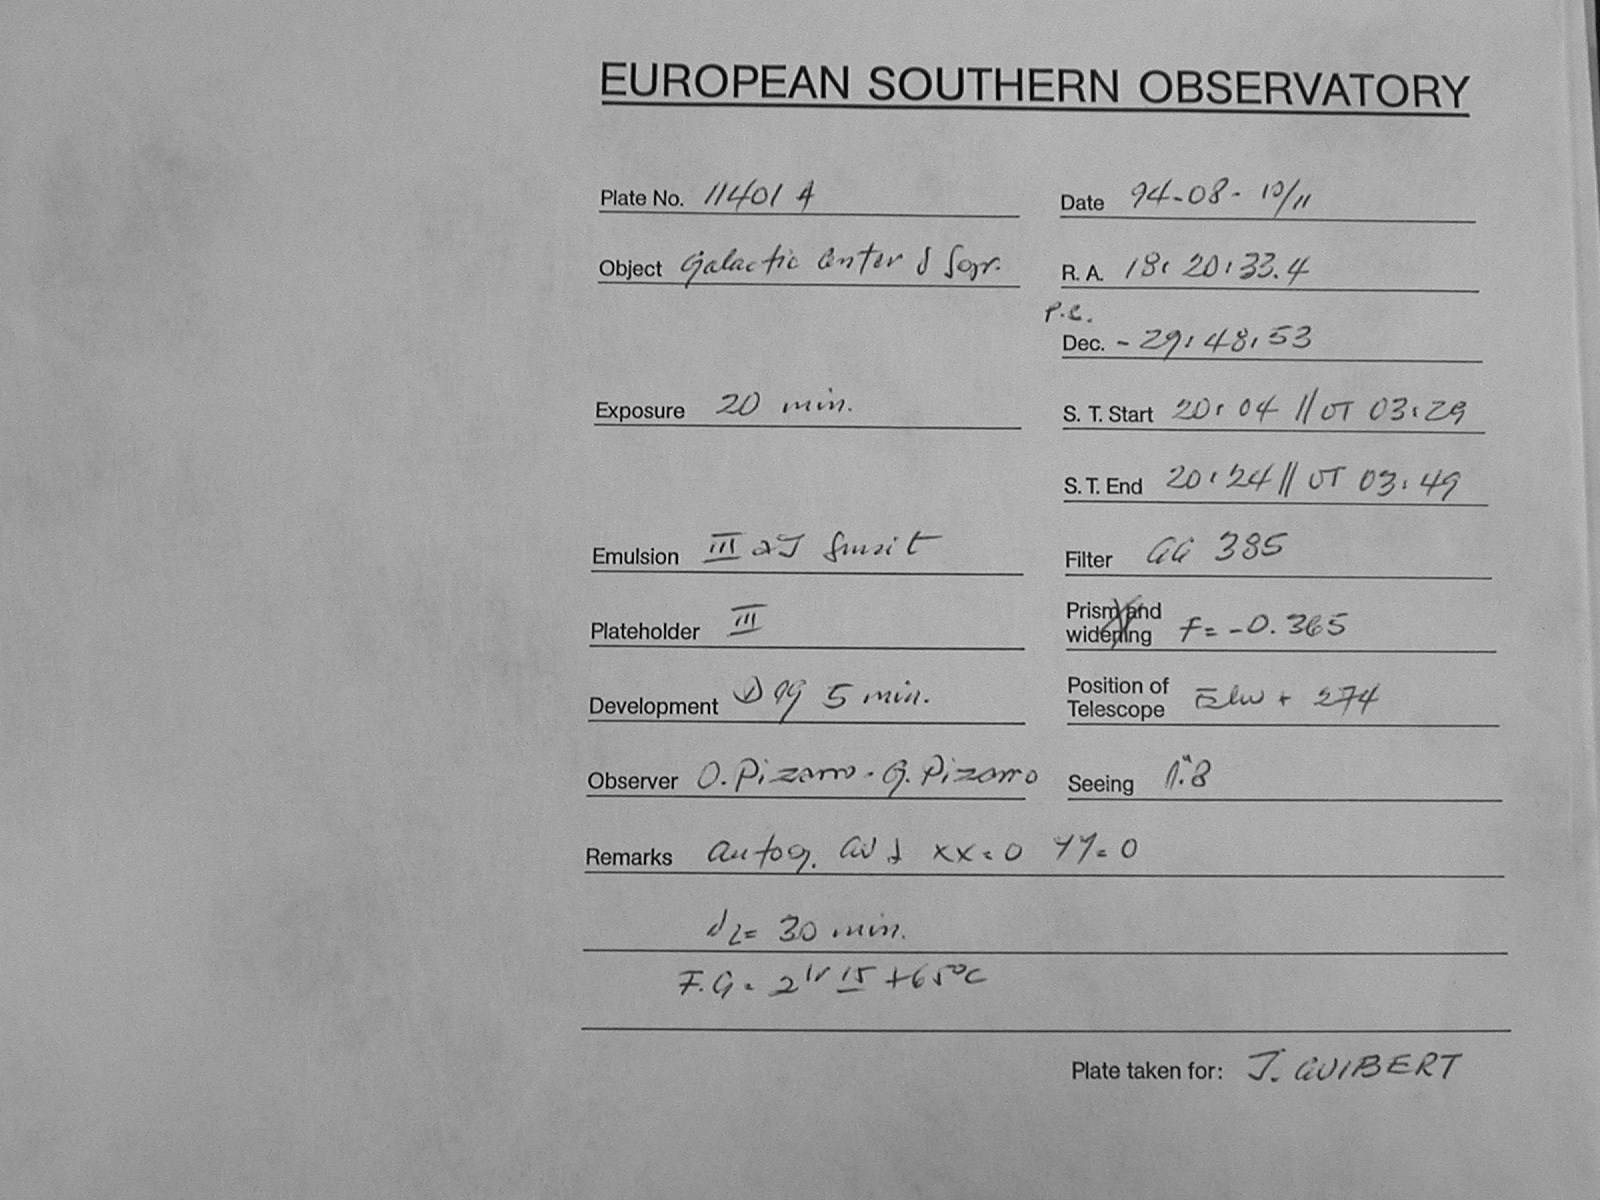 EUROPEAN SOUTHERN OBSERVATORY
Plate No. 11401 A
Date 94-08-10/11
Object Galactic Center & Sgr.
R. A. 18: 20: 33.4
P.C.
Dec. - 29: 48: 53
Exposure 20 min.
S. T. Start 20: 04 // UT 03: 29
S. T. End 20: 24 // UT 03: 49
Emulsion III aJ
Filter GG 385
Prism and widening F= -0.365
Plateholder III
Development D 19 5 min.
Position of Telescope + 274
Observer O. Pizarro - G. Pizarro
Seeing 1".8
Remarks autog. xx=0 YY=0
= 30 min.
F.G= 15 +65°C
Plate taken for: J. GUIBERT